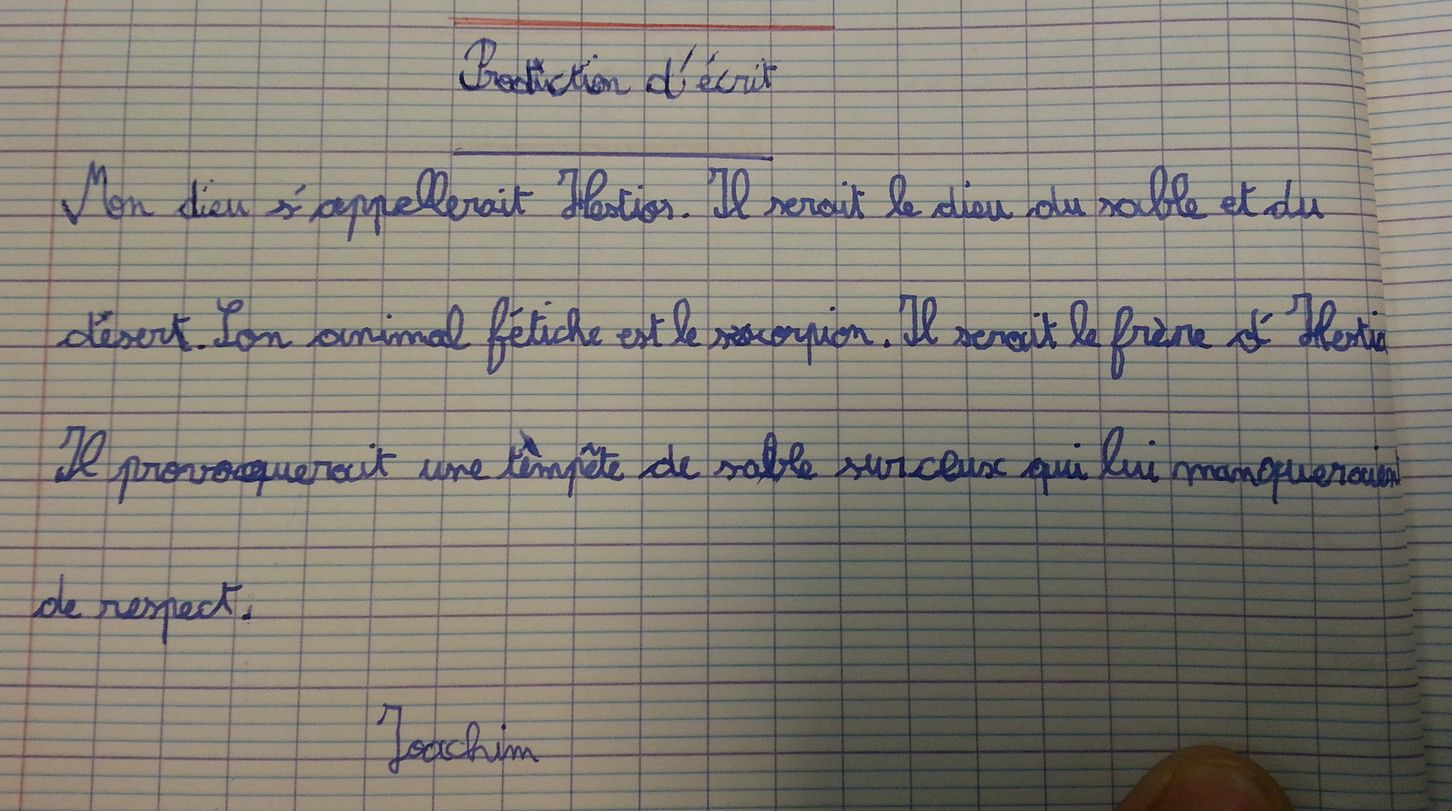 Production d'écrit
Mon dieu s'appellerait Hestios. Il serait le dieu du sable et du
désert. Son animal fétiche est le scorpion. Il serait le frère d'Hestia
Il provoquerait une tèmpête de sable sur ceux qui lui manqueraient
de respect.
Joachim